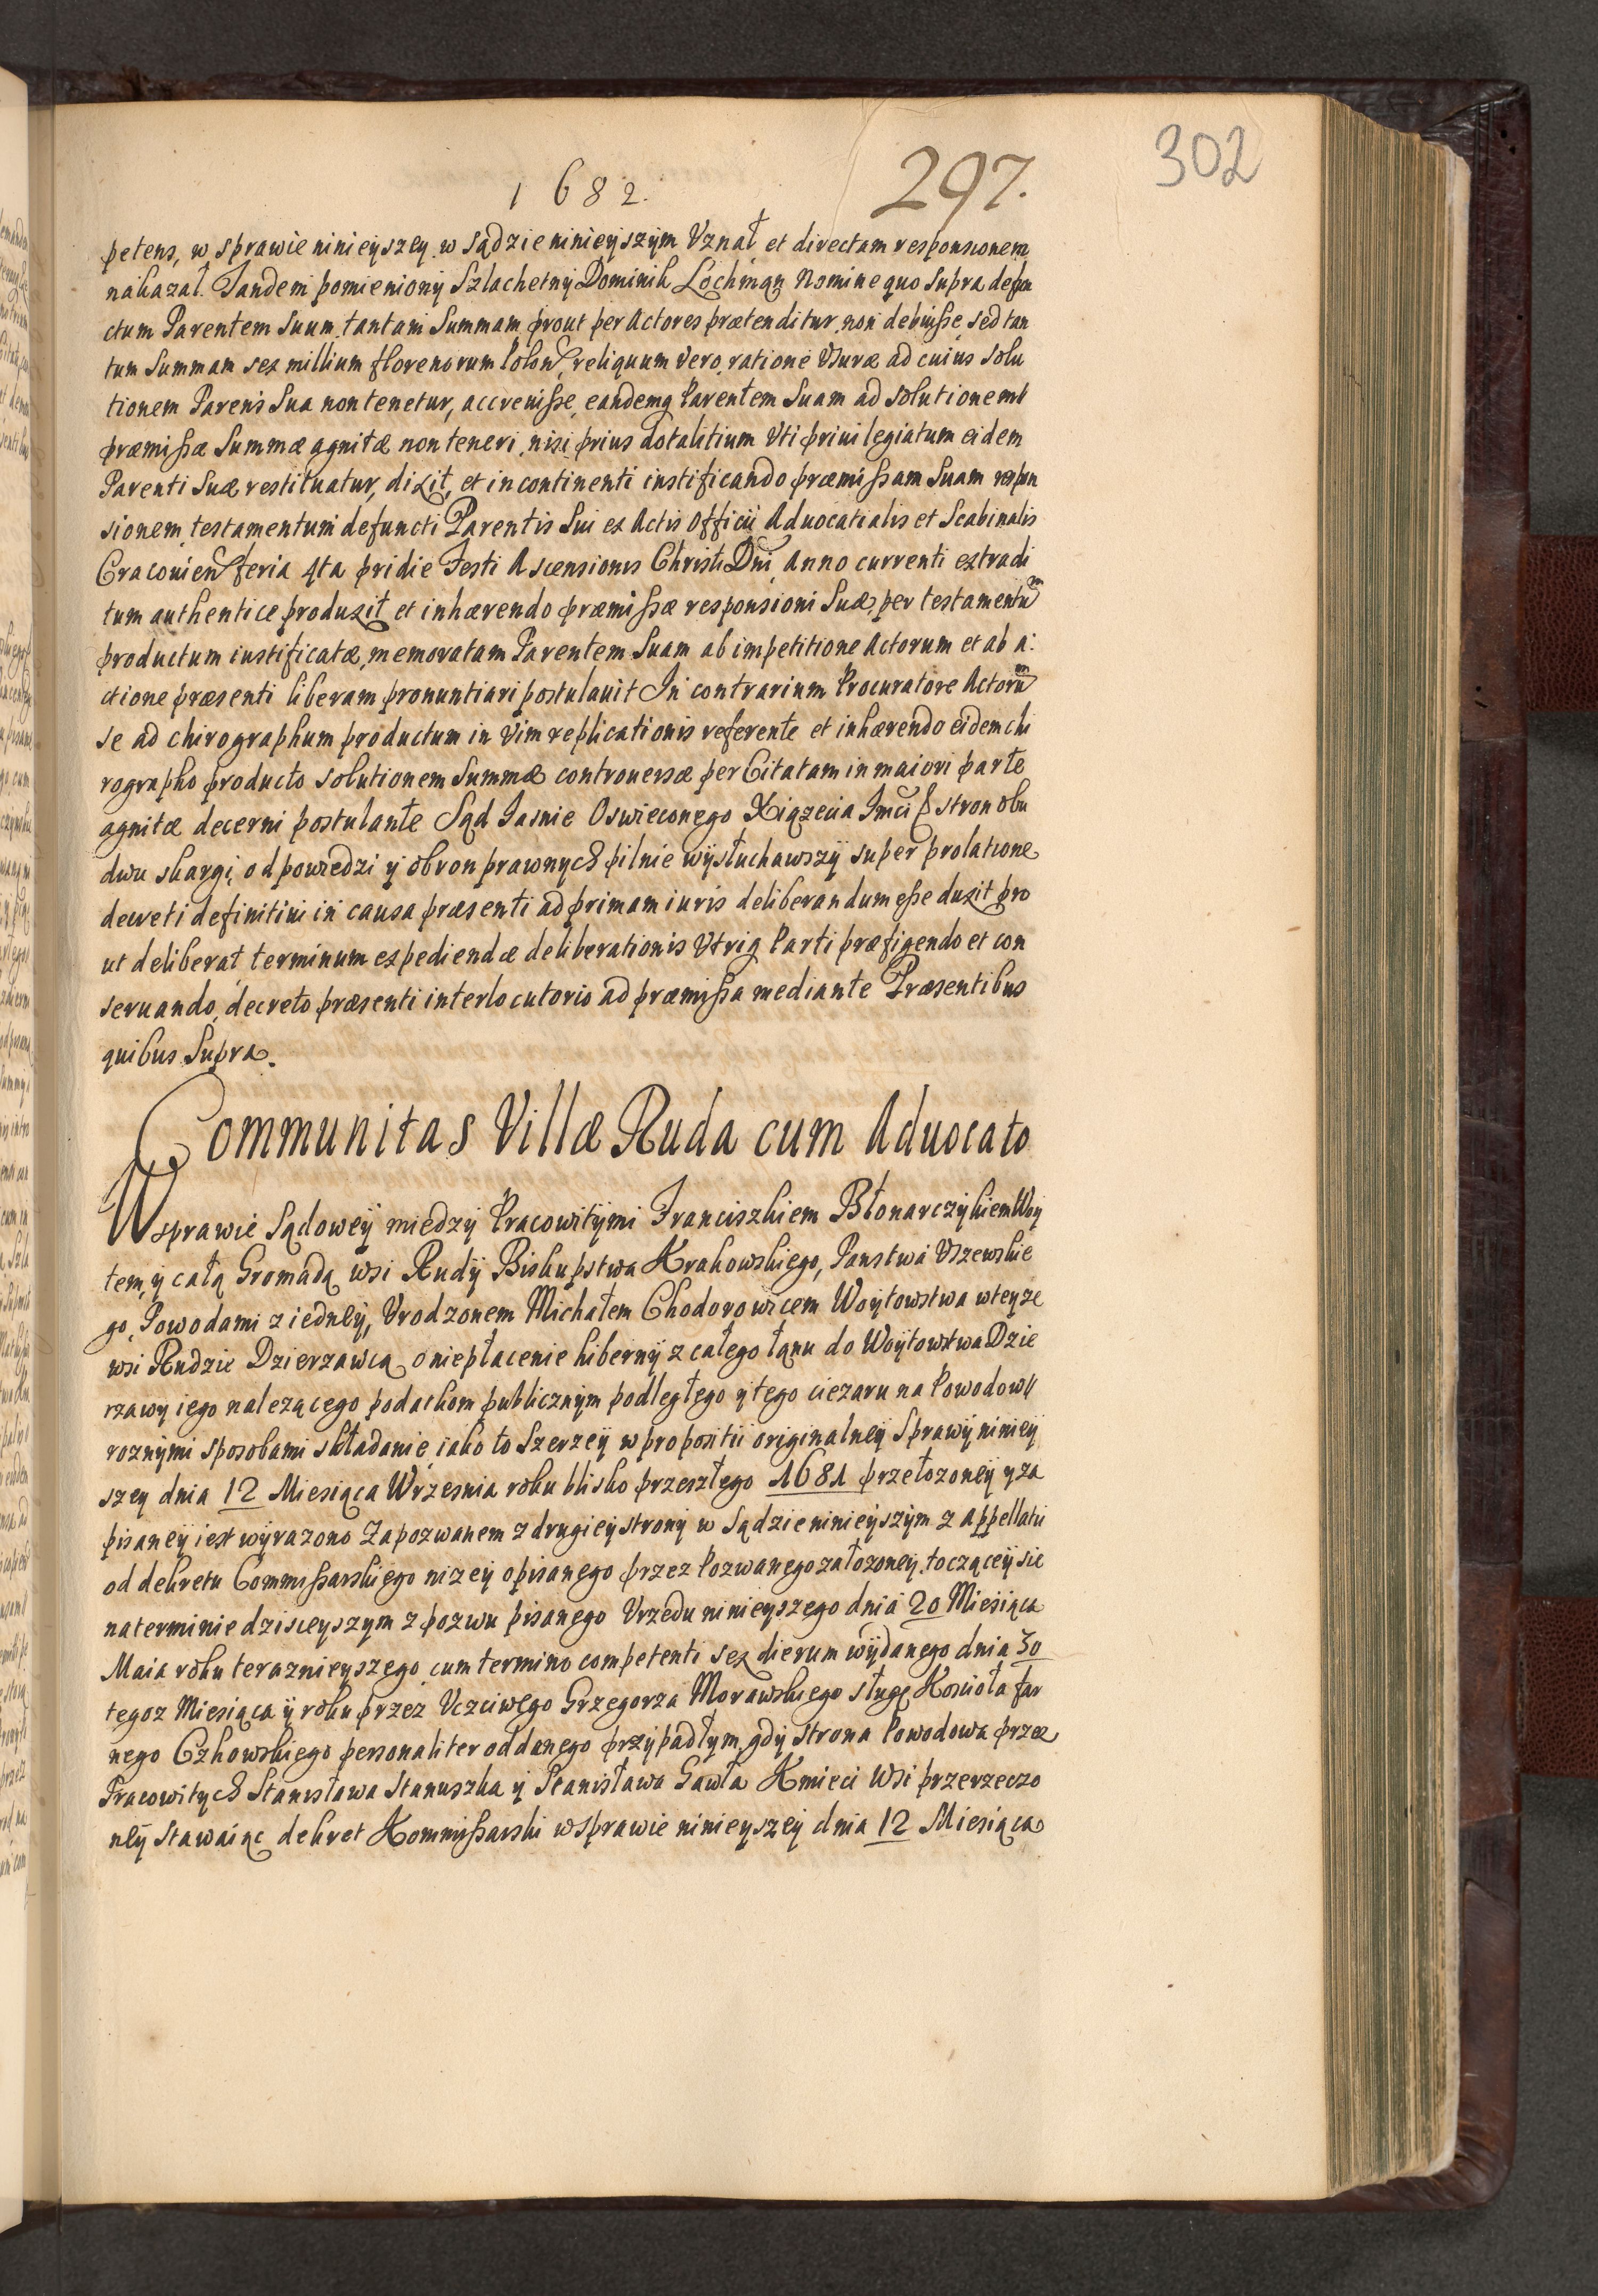 302
1682. 297.
petens, w sprawie ninieyszey w sądzie ninieyszym Vznał et directam responsionem
nakazał. Tandem pomieniony Szlachetny Dominik Lochman Nomine quo supra defun
ctum Parentem Suum tantam Summam prout per Actores prætenditur non debuisse, sed tan
tum Summam sex millium florenorum Polon, reliquum vero ratione Vsuræ ad cuius solu
tionem Parens Sua non tenetur, accrevisse, eandemq Parentem Suam ad solutionem
præmissæ Summæ agnitæ non teneri, nisi prius dotalitium Vti priuilegiatum eidem
Parenti Suæ restituatur, dixit, et in continenti iustificando præmissam Suam respon
sionem, testamentum defuncti Parentis Sui ex Actis Officii Aduocatialis et Scabinalis
Cracouien feria 4ta pridie Festi Ascensionis Christi Dni Anno currenti extradi
tum authentice produxit et inhærendo præmissæ responsioni Suæ, per testamentū
productum iustificatæ, memoratam Parentem Suam ab impetitione Actorum et ab a:
ctione præsenti liberam pronuntiari postulauit In contrarium Procuratore Actorū
se ad chirographum productum in vim replicationis referente et inhærendo eidem chi
rographo producto solutionem Summæ controuersæ per Citatam in maiori parte
agnitæ decerni postulante Sąd Iasnie Oswieconego Xiązecia Imci stron obu
dwu skargi, odpowiedzi y obron prawnych pilnie wysłuchawszy super prolatione
decreti definitiui in causa præsenti ad primam iuris deliberandum esse duxit pro
ut deliberat, terminum expediendæ deliberationis Vtriq Parti præfigendo et con
seruando, decreto præsenti interlocutorio ad præmissa mediante Præsentibus
quibus Supra.
Communitas Villæ Ruda cum Aduocato
W sprawie Sądowey miedzy Pracowitymi Franciszkiem Błonarczykiem Woy
tem, y całą Gromadą wsi Rudy Biskupstwa Krakowskiego, Panstwa Vszewskie
go, Powodami z iedney, Vrodzonem Michałem Chodorowicem Woytowstwa wteyze
wsi Rudzie Dzierzawcą o niepłacenie hiberny z całego łanu do Woytowstwa Dzie
rzawy iego nalezącego podatkom publicznym podległego y tego ciezaru na Powodow
roznymi sposobami składanie, iako to Szerzey w propositii originalney Sprawy niniey
szey dnia 12 Miesiąca Wrzesnia roku blisko przeszłego 1681 przełozoney y za
pisaney iest wyrazono Zapozwanem z drugiey strony w Sądzie ninieyszym z appellatii
od dekretu Commissarskiego nizey opisanego przez Pozwanego załozoney, toczącey sie
na terminie dzisieyszym z pozwu pisanego Vrzedu ninieyszego dnia 20 Miesiąca
Maia roku teraznieyszego cum termino competenti sex dierum wydanego dnia 30
tegoz Miesiąca y roku przez Vczciwego Grzegorza Morawskiego sługę Koscioła far
nego Czhowskiego personaliter oddanego przypadłym, gdy strona Powodowa przez
Pracowitych Stanisława Stanuszka y Stanisława Gawła Kmieci Wsi przerzeczo
ney stawaiąc dekret Kommissarski w sprawie ninieyszey dnia 12 Miesiąca